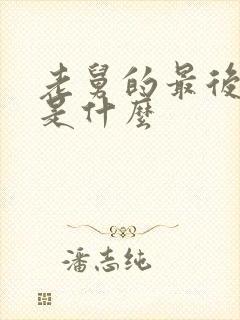 老舅的最後
是什麼
潘志纯